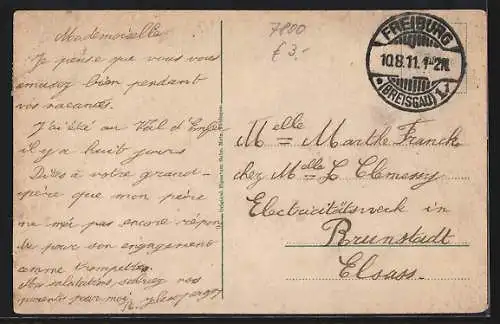 Mademoiselle
Je pense que vous vous
amusez bien pendant
vos vacances.
J'ai été au Val d'Enfer
il y a huit jours
Dites à votre grand-
père que mon père
ne m'a pas encore répon-
du pour son engagement
comme trompette.
Mes salutations, saluez vos
parents pour moi
7800
£ 3.-
FREIBURG
10.8.11. 1-2N.
*(BREISGAU) 1.
Melle Marthe Franck
chez Melle L Clemessy
Electricitätswerk in
Brunstadt
Elsass.